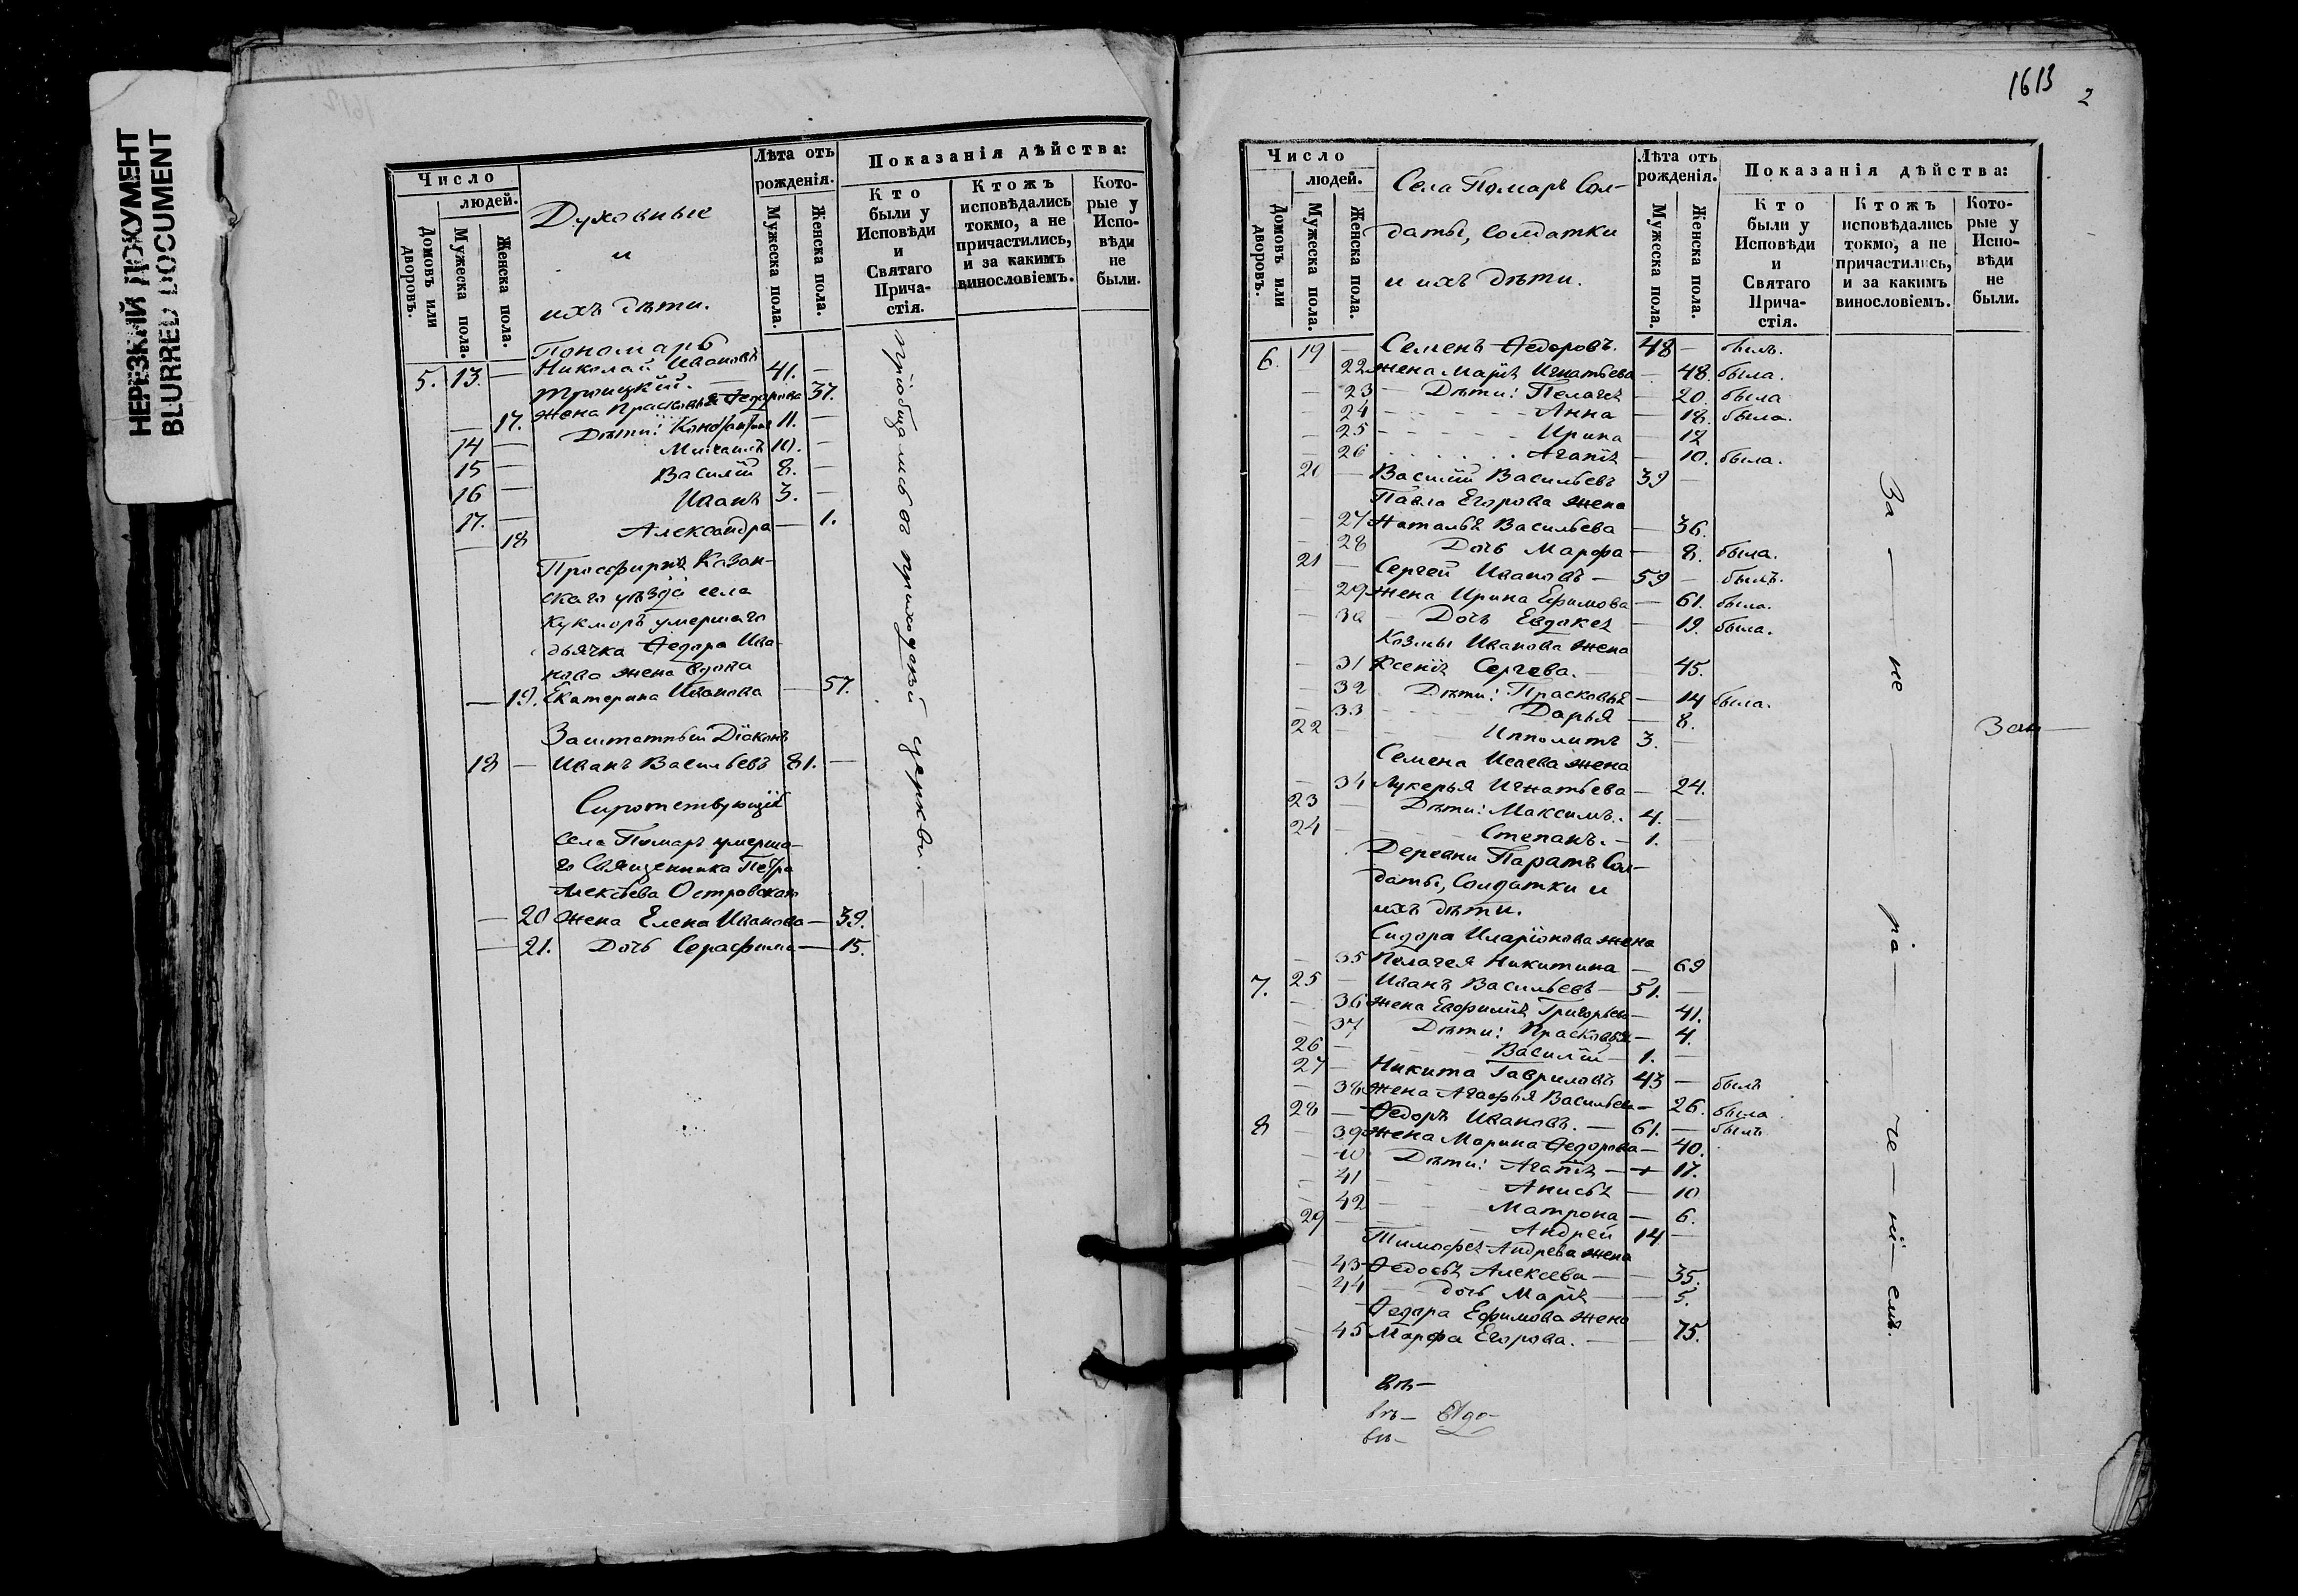 НЕРЕЗКИЙ ДОКУМЕНТ
BLURRED DOCUMENT
Число
людей.
Домовъ или дворовъ.
Мужеска пола.
Женска пола.
Духовные
и
ихъ дѣти.
Лѣта отъ
рожденія.
Мужеска пола.
Женска пола.
Показанія дѣйства:
Кто
были у
Исповѣди
и
Святаго
Прича-
стія.
Ктожъ
исповѣдались
токмо, а не
причастились,
и за какимъ
винословіемъ.
Кото-
рые у
Испо-
вѣди
не
были.
Пономарь
5. 13. — Николай Ивановъ 41. —
Троицкій. —
— 17. жена Прасковья Федорова 37.
14 — Дѣти: Константинъ 11. —
15 — Михаилъ 10. —
16 — Василій 8. —
17. — Иванъ 3. —
— 18 Александра — 1.
Просфирня Казан-
скаго уѣзда села
Кукморъ умершаго
дьячка Федора Ива-
нова жена вдова
— 19. Екатерина Иванова — 57.
Заштатный Діаконъ
18 — Иванъ Васильевъ 81. —
Сиротствующія
села Помаръ умерша-
го Священника Петра
Алексѣева Островскаго
— 20 жена Елена Иванова — 39.
— 21. Дочь Серафима — 15.
пріобщались въ приходской церкви.
1613 2
Число
людей.
Домовъ или дворовъ.
Мужеска пола.
Женска пола.
Села Помаръ Сол-
даты, солдатки
и ихъ дѣти.
Лѣта отъ
рожденія.
Мужеска пола.
Женска пола.
Показанія дѣйства:
Кто
были у
Исповѣди
и
Святаго
Прича-
стія.
Ктожъ
исповѣдались
токмо, а не
причастились,
и за какимъ
винословіемъ.
Кото-
рые у
Испо-
вѣди
не
были.
6. 19 — Семенъ Федоровъ. 48 — былъ.
22 жена Марія Игнатьева — 48. была.
— 23 Дѣти: Пелагея — 20. была
— 24 Анна — 18. была.
— 25 Ирина — 12
— 26 Агапія — 10. была.
20 — Василій Васильевъ 39 —
Павла Егорова жена
— 27 Наталья Васильева — 36.
— 28 Дочь Марфа — 8. была.
21 — Сергей Ивановъ — 59 — былъ.
— 29 жена Ирина Ефимова — 61. была.
— 30 Дочь Евдокея — 19. была.
Козмы Иванова жена
— 31 Ксенія Сергева. — 45.
— 32 Дѣти: Прасковья — 14 была.
— 33 Дарья — 8.
22 — Ипполитъ 3. —
Семена Исаева жена
— 34 Лукерья Игнатьева — 24.
23 — Дѣти: Максимъ. 4. —
24 — Степанъ. — 1. —
Деревни Паратъ Сол-
даты, Солдатки и
ихъ дѣти.
Сидора Иларіонова жена
— 35 Пелагея Никитина — 69
7. 25 — Иванъ Васильевъ — 51. —
— 36 жена Евфимія Григорьева — 41.
— 37 Дѣти: Прасковья — 4.
26 — Василій — 1. —
27 — Никита Гавриловъ 43 — былъ
— 38 жена Агафья Васильева — 26. была
8 28 — Федоръ Ивановъ. — 61. — былъ
— 39 жена Марина Федорова — 40.
— 40 Дѣти: Агапія — 17.
— 41 Анисья — 10
— 42 Матрона — 6.
29 — Андрей 14 —
Тимофея Андрева жена
— 43 Федосья Алексева — 35.
— 44 дочь Марія — 5.
Федора Ефимова жена
— 45 Марфа Егорова. — 75.
За — не — ра — че — ні — емъ.